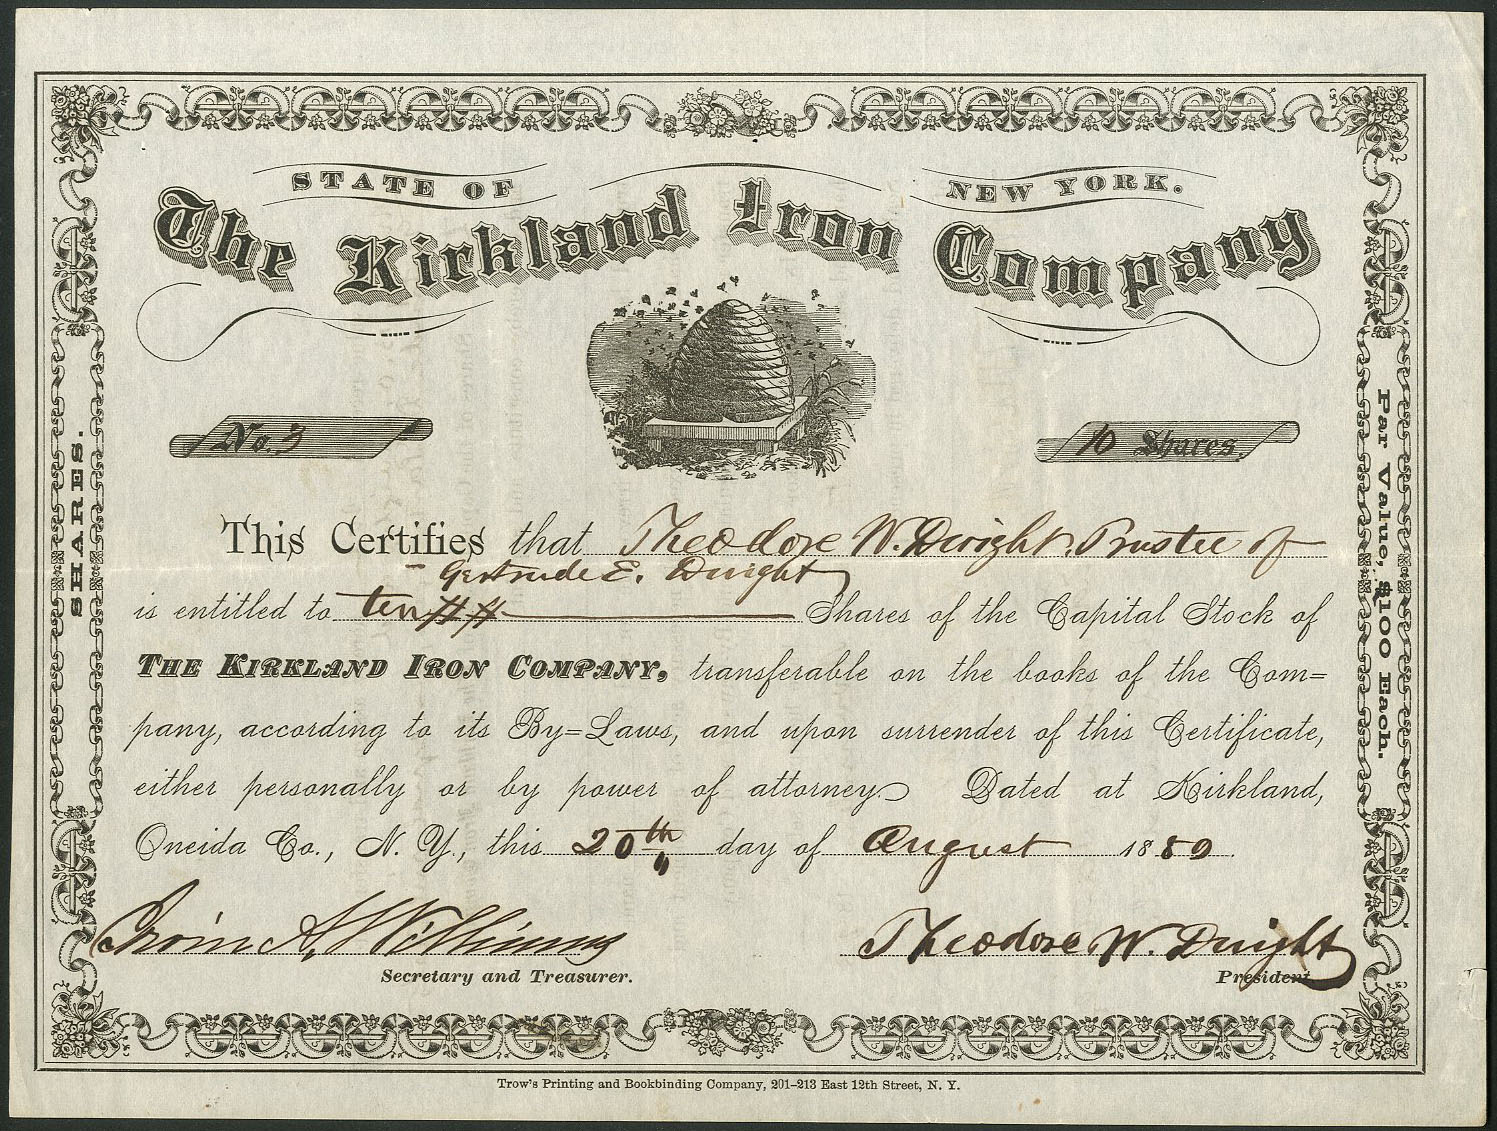 STATE OF NEW YORK.
The Kirkland Iron Company
No. 3
10 Shares.
SHARES.
Par Value, $100 Each.
This Certifies that Theodore W. Dwight, Trustee of
Gertrude E. Dwight
is entitled to ten Shares of the Capital Stock of
THE KIRKLAND IRON COMPANY, transferable on the books of the Com=
pany, according to its By=Laws, and upon surrender of this Certificate,
either personally or by power of attorney. Dated at Kirkland,
Oneida Co., N. Y., this 20th day of August 1880.
Irvin A. Williams
Theodore W. Dwight
Secretary and Treasurer.
President.
Trow's Printing and Bookbinding Company, 201–213 East 12th Street, N. Y.